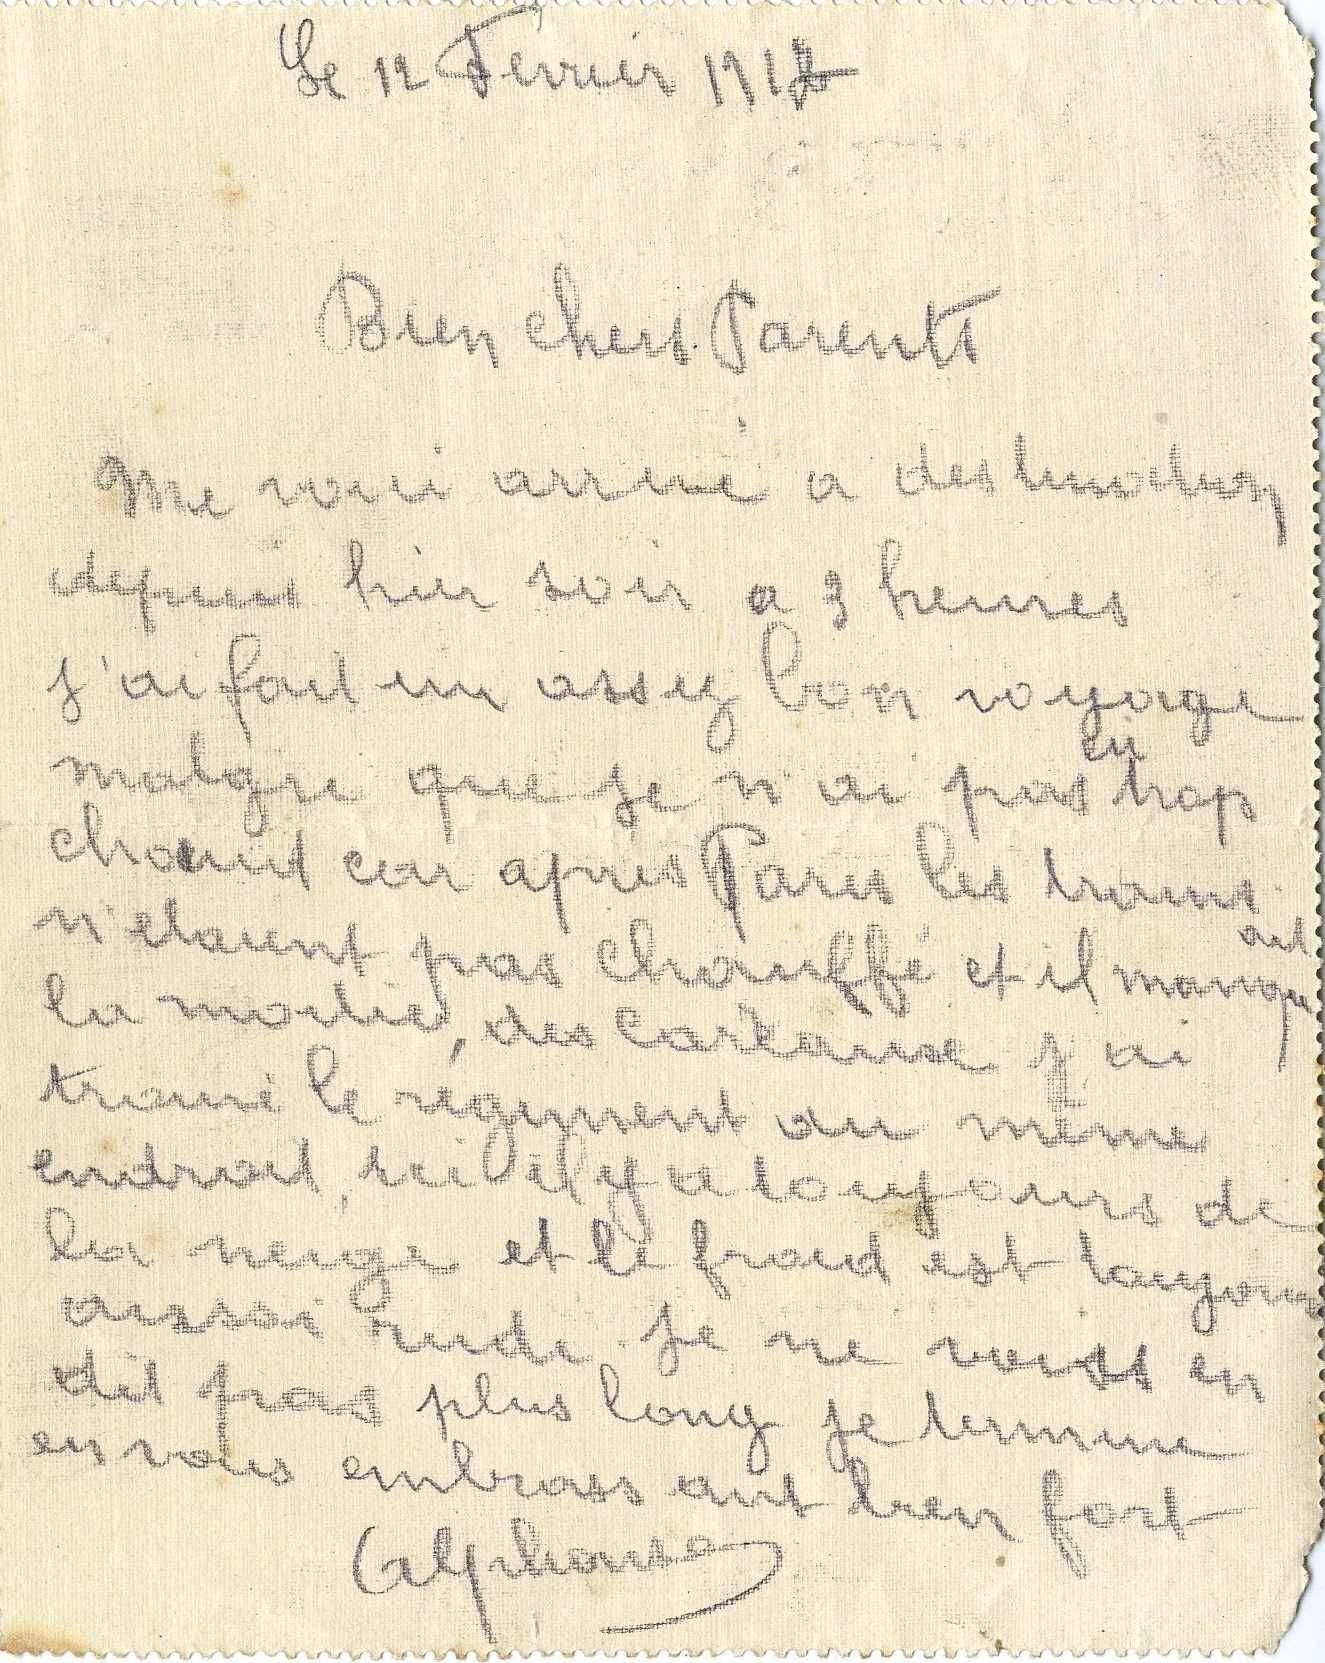 Le 12 Fevrier 1917
Bien chers Parents
Me voici arrivé a destination
depuis hier soir a 9 heures
j'ai fait un assez bon voyage
malgre que je n'ai pas eu trop
chaud car apres Paris les trains
n'etaient pas chauffé et il manquait
la moitié, des carreaux j'ai
trouvé le régiment au même
endroit, ici il y a toujours de
la neige et le froid est toujours
aussi rude je ne vous en
dit pas plus long je termine
en vous embrassant bien fort
Alphonse